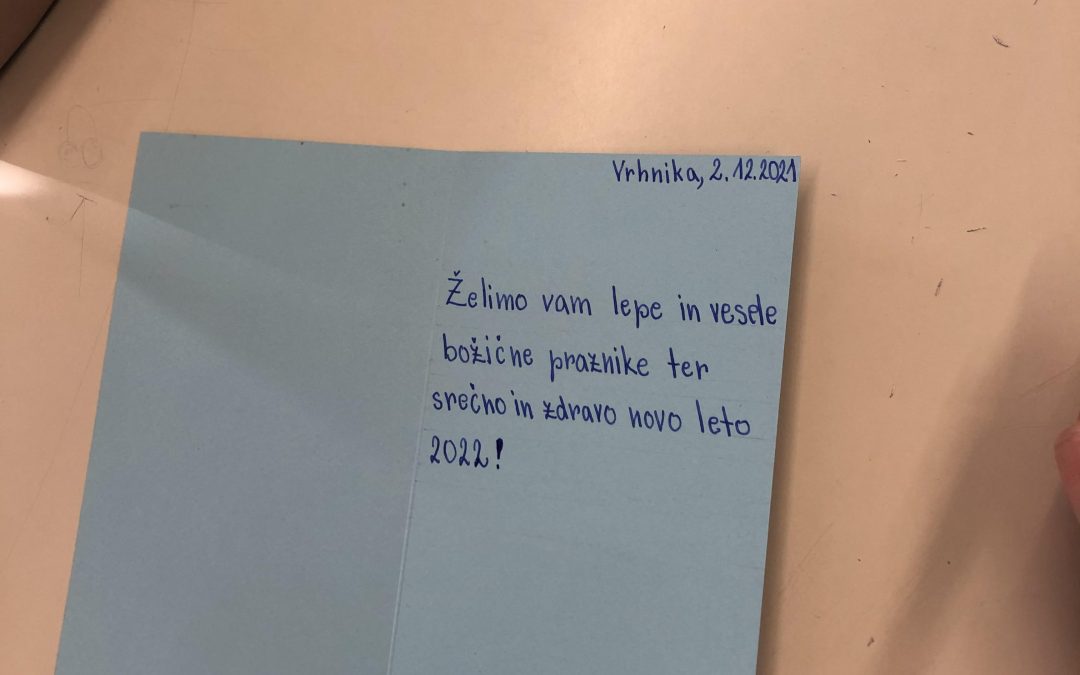 Vrhnika, 2.12.2021
Želimo vam lepe in vesele
božične praznike ter
srečno in zdravo novo leto
2022!